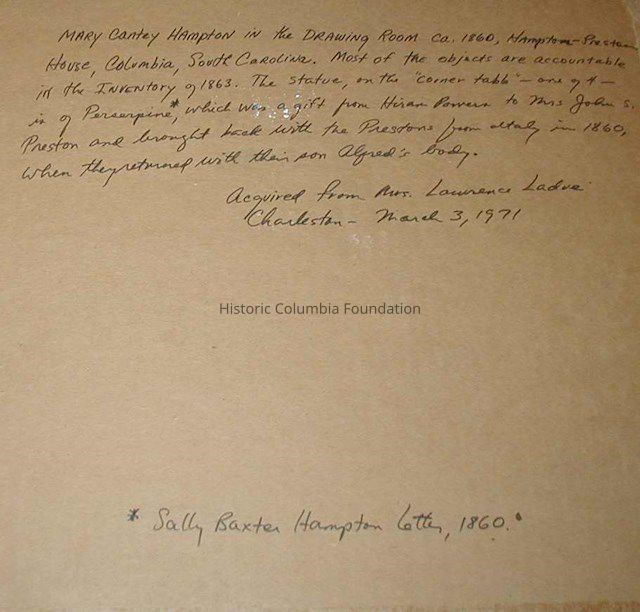 MARY Cantey HAMPTON in the DRAWING ROOM ca. 1860, Hampton-Preston
House, Columbia, South Carolina. Most of the objects are accountable
in the Inventory of 1863. The statue, on the "corner table" - one of 4 -
is of Perserpine,* which was a gift from Hiram Powers to Mrs John S.
Preston and brought back with the Prestons from Italy in 1860,
when they returned with their son Alfred's body.
Acquired from Mrs. Lawrence
Charleston - March 3, 1971
Historic Columbia Foundation
* Sally Baxter Hampton letter, 1860.